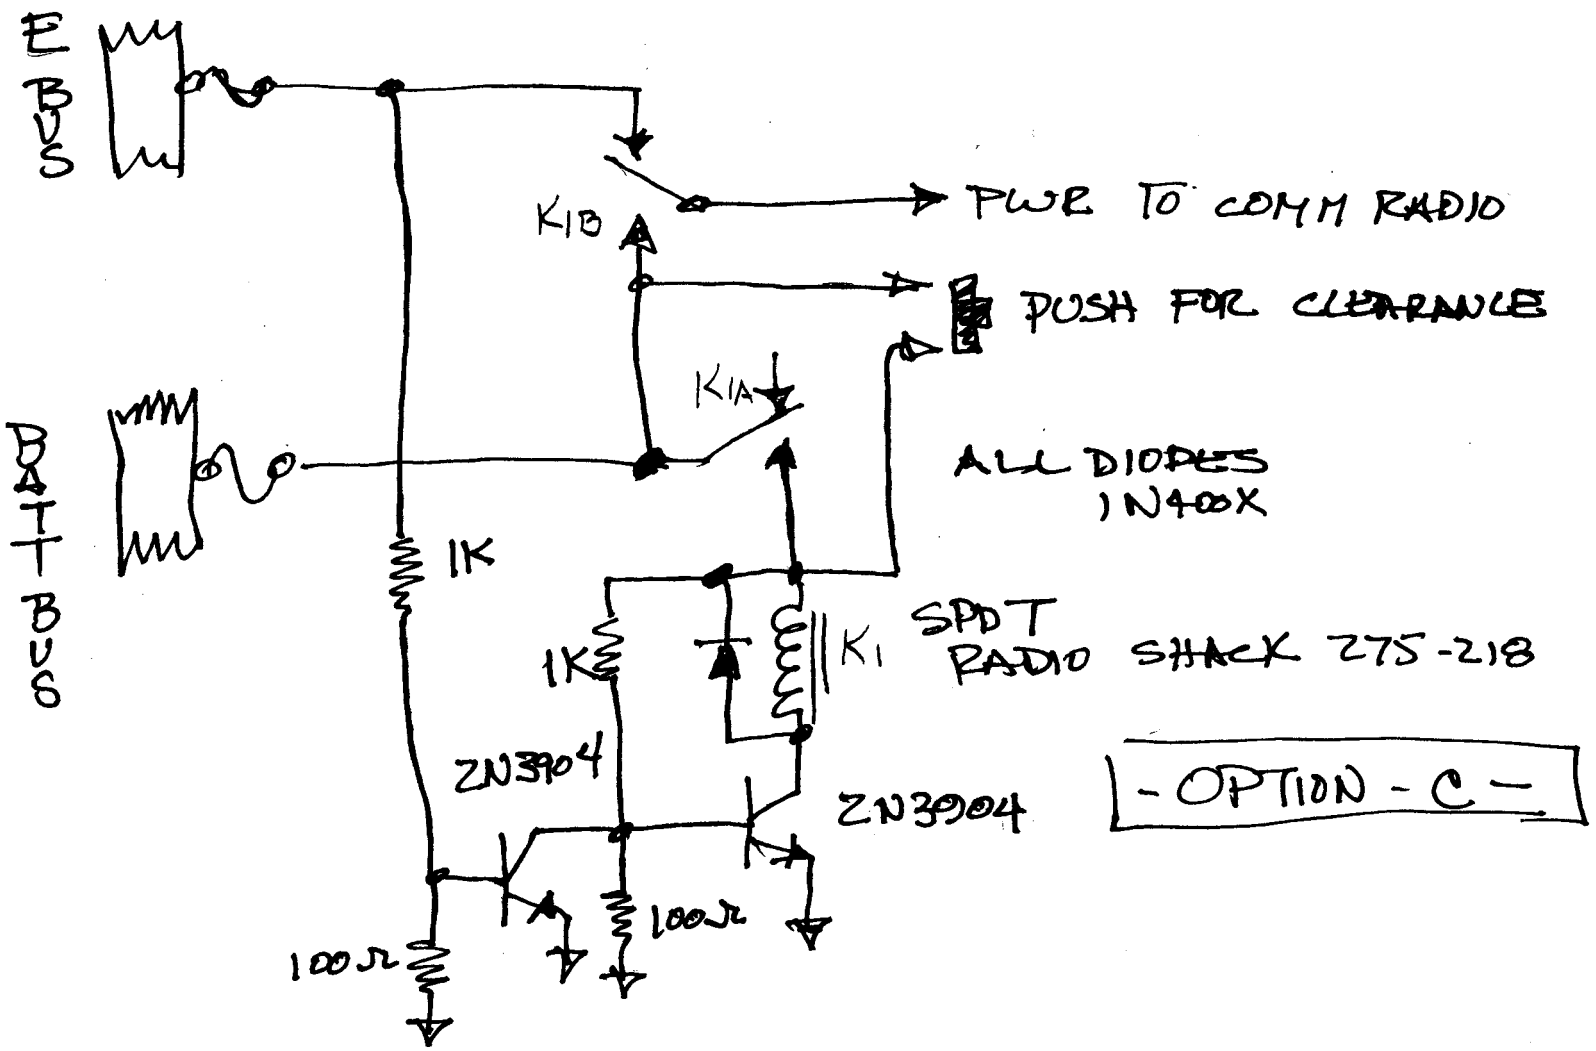 E BUS
PWR TO COMM RADIO
K1B
PUSH FOR CLEARANCE
K1A
BATT BUS
ALL DIODES
1N400X
1K
SPDT
K1
RADIO SHACK 275-218
1K
2N3904
2N3904
- OPTION - C -
100Ω
100Ω